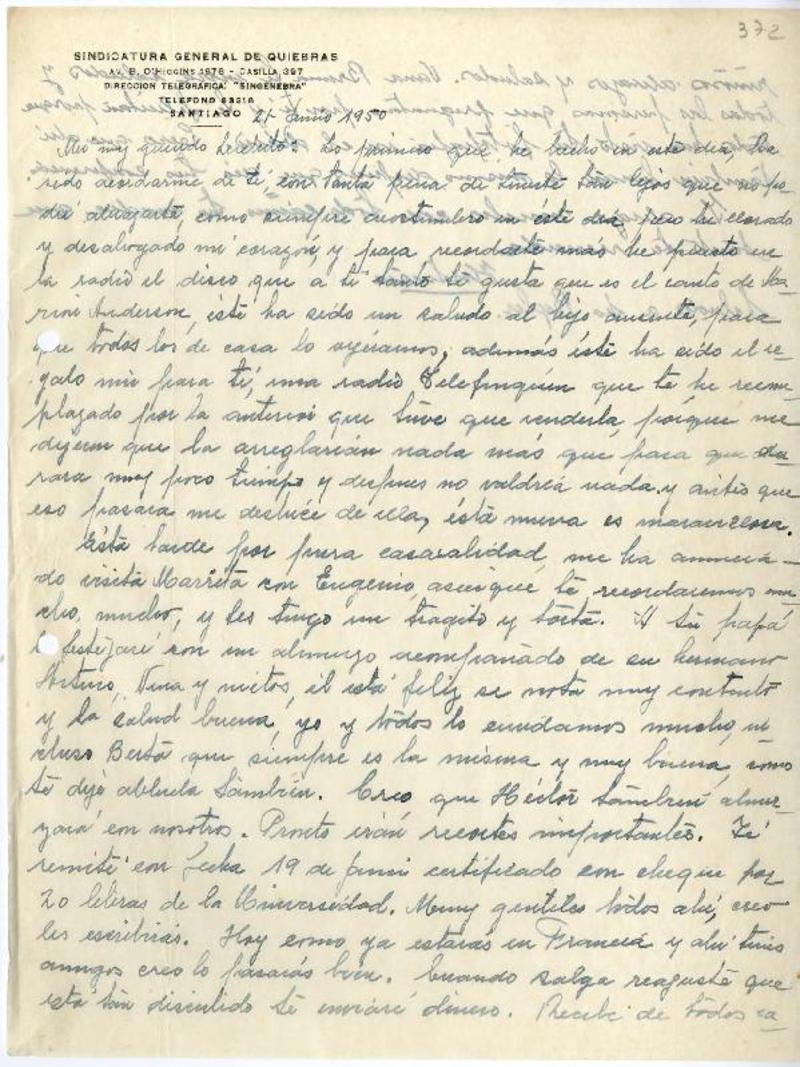 372
SINDICATURA GENERAL DE QUIEBRAS
AV. B. O'HIGGINS 1676 - CASILLA 397
DIRECCION TELEGRAFICA: "SINGENEBRA"
TELEFONO 83218
SANTIAGO 21- Junio 1950
Mi muy querido : Lo primero que he hecho en este día, ha
sido acordarme de ti, con tanta pena de tenerte tan lejos que no po-
dré abrazarte, como siempre acostumbro en éste día, pero he llorado
y desahogado mi corazón, y para recordarte más he puesto en
la radio el disco que a ti tanto te gusta que es el canto de Ma-
rian Anderson, éste ha sido un saludo al hijo ausente, para
que todos los de casa lo oyéramos, además éste ha sido el re-
galo mio para ti, una radio Telefunquen que te he reem-
plazado por la anterior que tuve que venderla, porque me
dijeron que la arreglarían nada más que para que du-
rara muy poco tiempo y despues no valdría nada y antes que
eso pasara me deshice de ella, ésta nueva es maravillosa.
Esta tarde por pura casualidad me ha anuncia-
do visita Marieta con Eugenio, asi que te recordaremos mu-
cho, mucho, y les tengo un traguito y torta. A tu papá
lo festejaré con un almuerzo acompañado de su hermano
Arturo, Nina y nietos, él está feliz se nota muy contento
y la salud buena, yo y todos lo cuidamos mucho, in-
cluso Berta que siempre es la misma y muy buena, como
te dije abuela también. Creo que Héctor también almor-
zará con nosotros. Pronto irán recortes importantes. Te
remité con fecha 19 de junio certificado con cheque por
20 libras de la Universidad. Muy gentiles todos ahí, creo
les escribirás. Hoy como ya estarás en Francia y ahí tienes
amigos creo lo pasarás bien. Cuando salga reajuste que
está tan discutido te enviaré dinero. Recibe de todos ca-